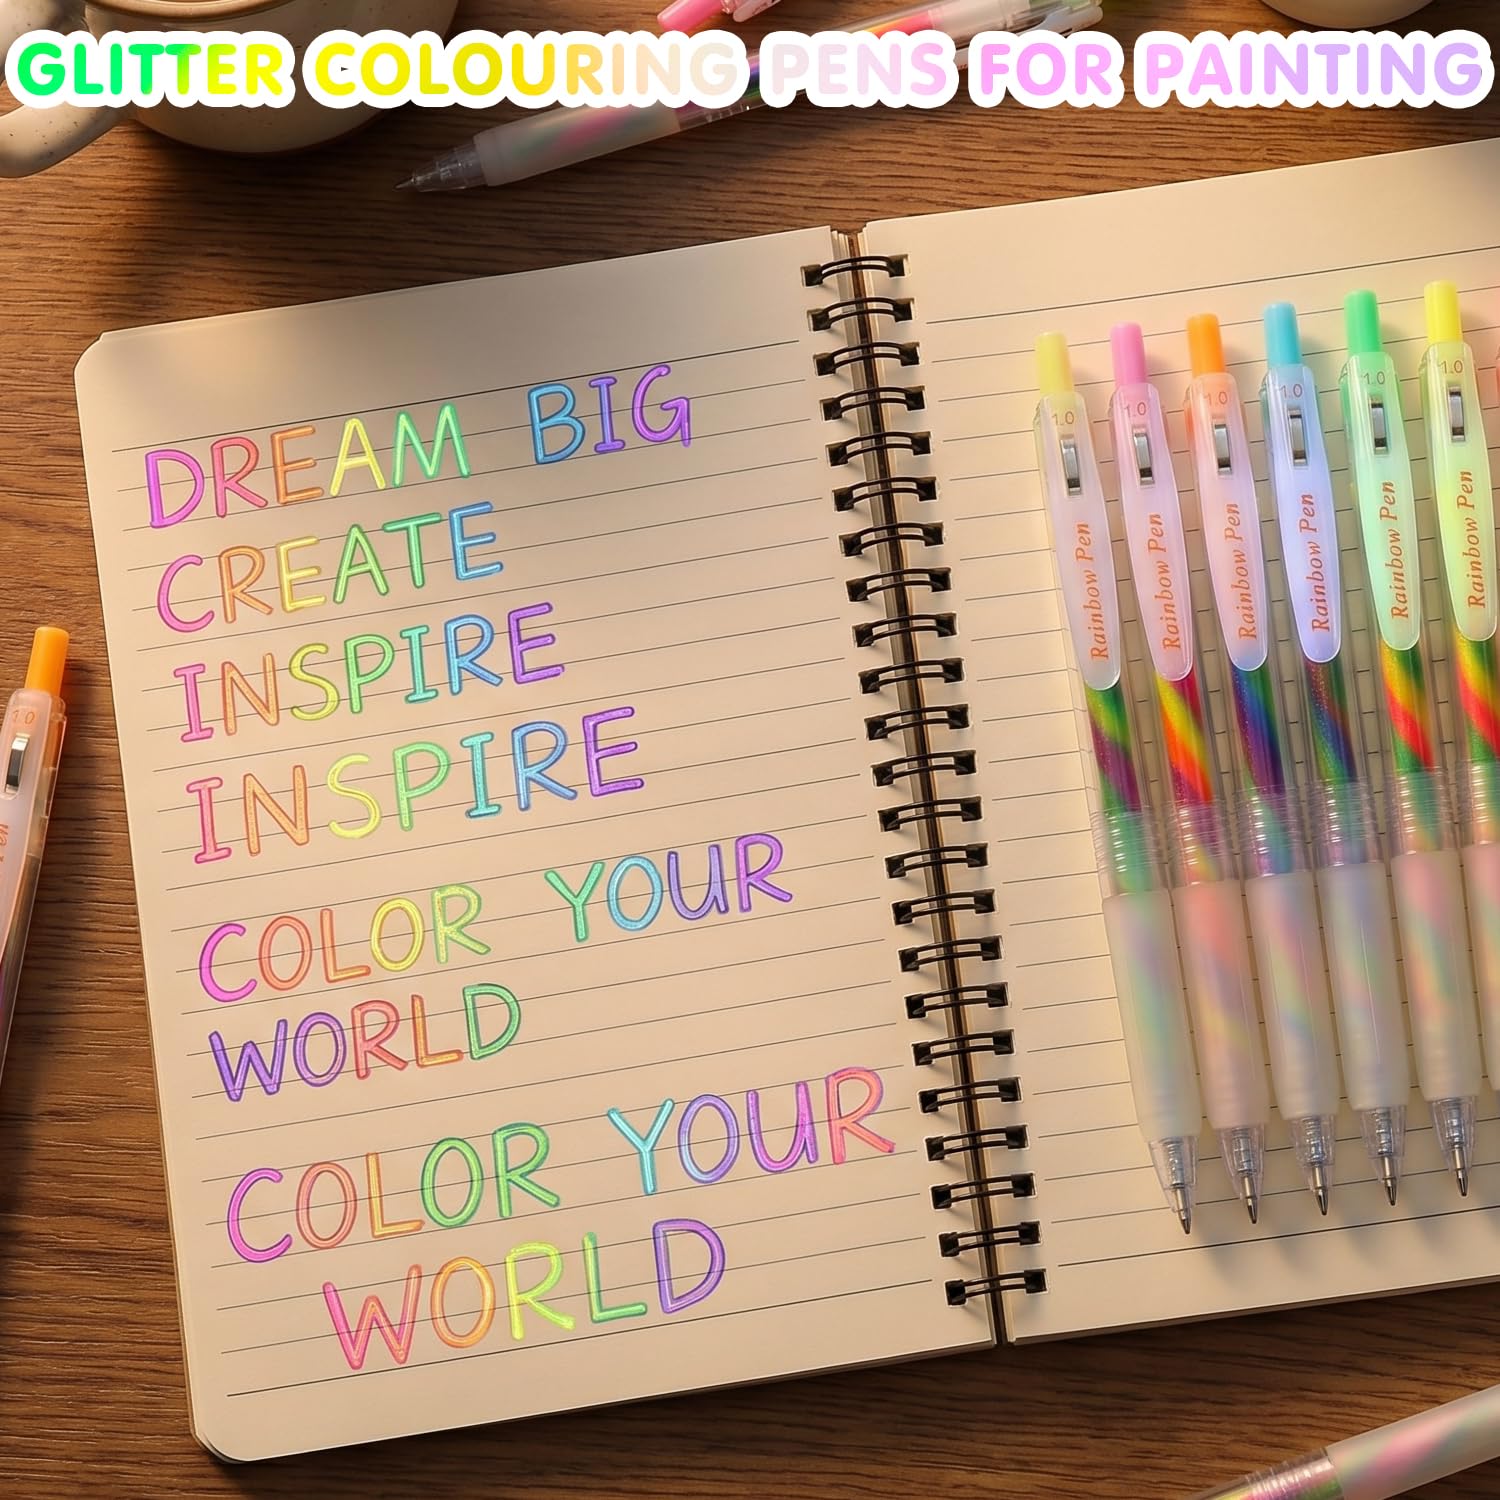 GLITTER COLOURING PENS FOR PAINTING
DREAM BIG
CREATE
INSPIRE
INSPIRE
COLOR YOUR
WORLD
COLOR YOUR
WORLD
1.0
Rainbow Pen
1.0
Rainbow Pen
1.0
Rainbow Pen
1.0
Rainbow Pen
1.0
Rainbow Pen
1.0
Rainbow Pen
1.0
Pen